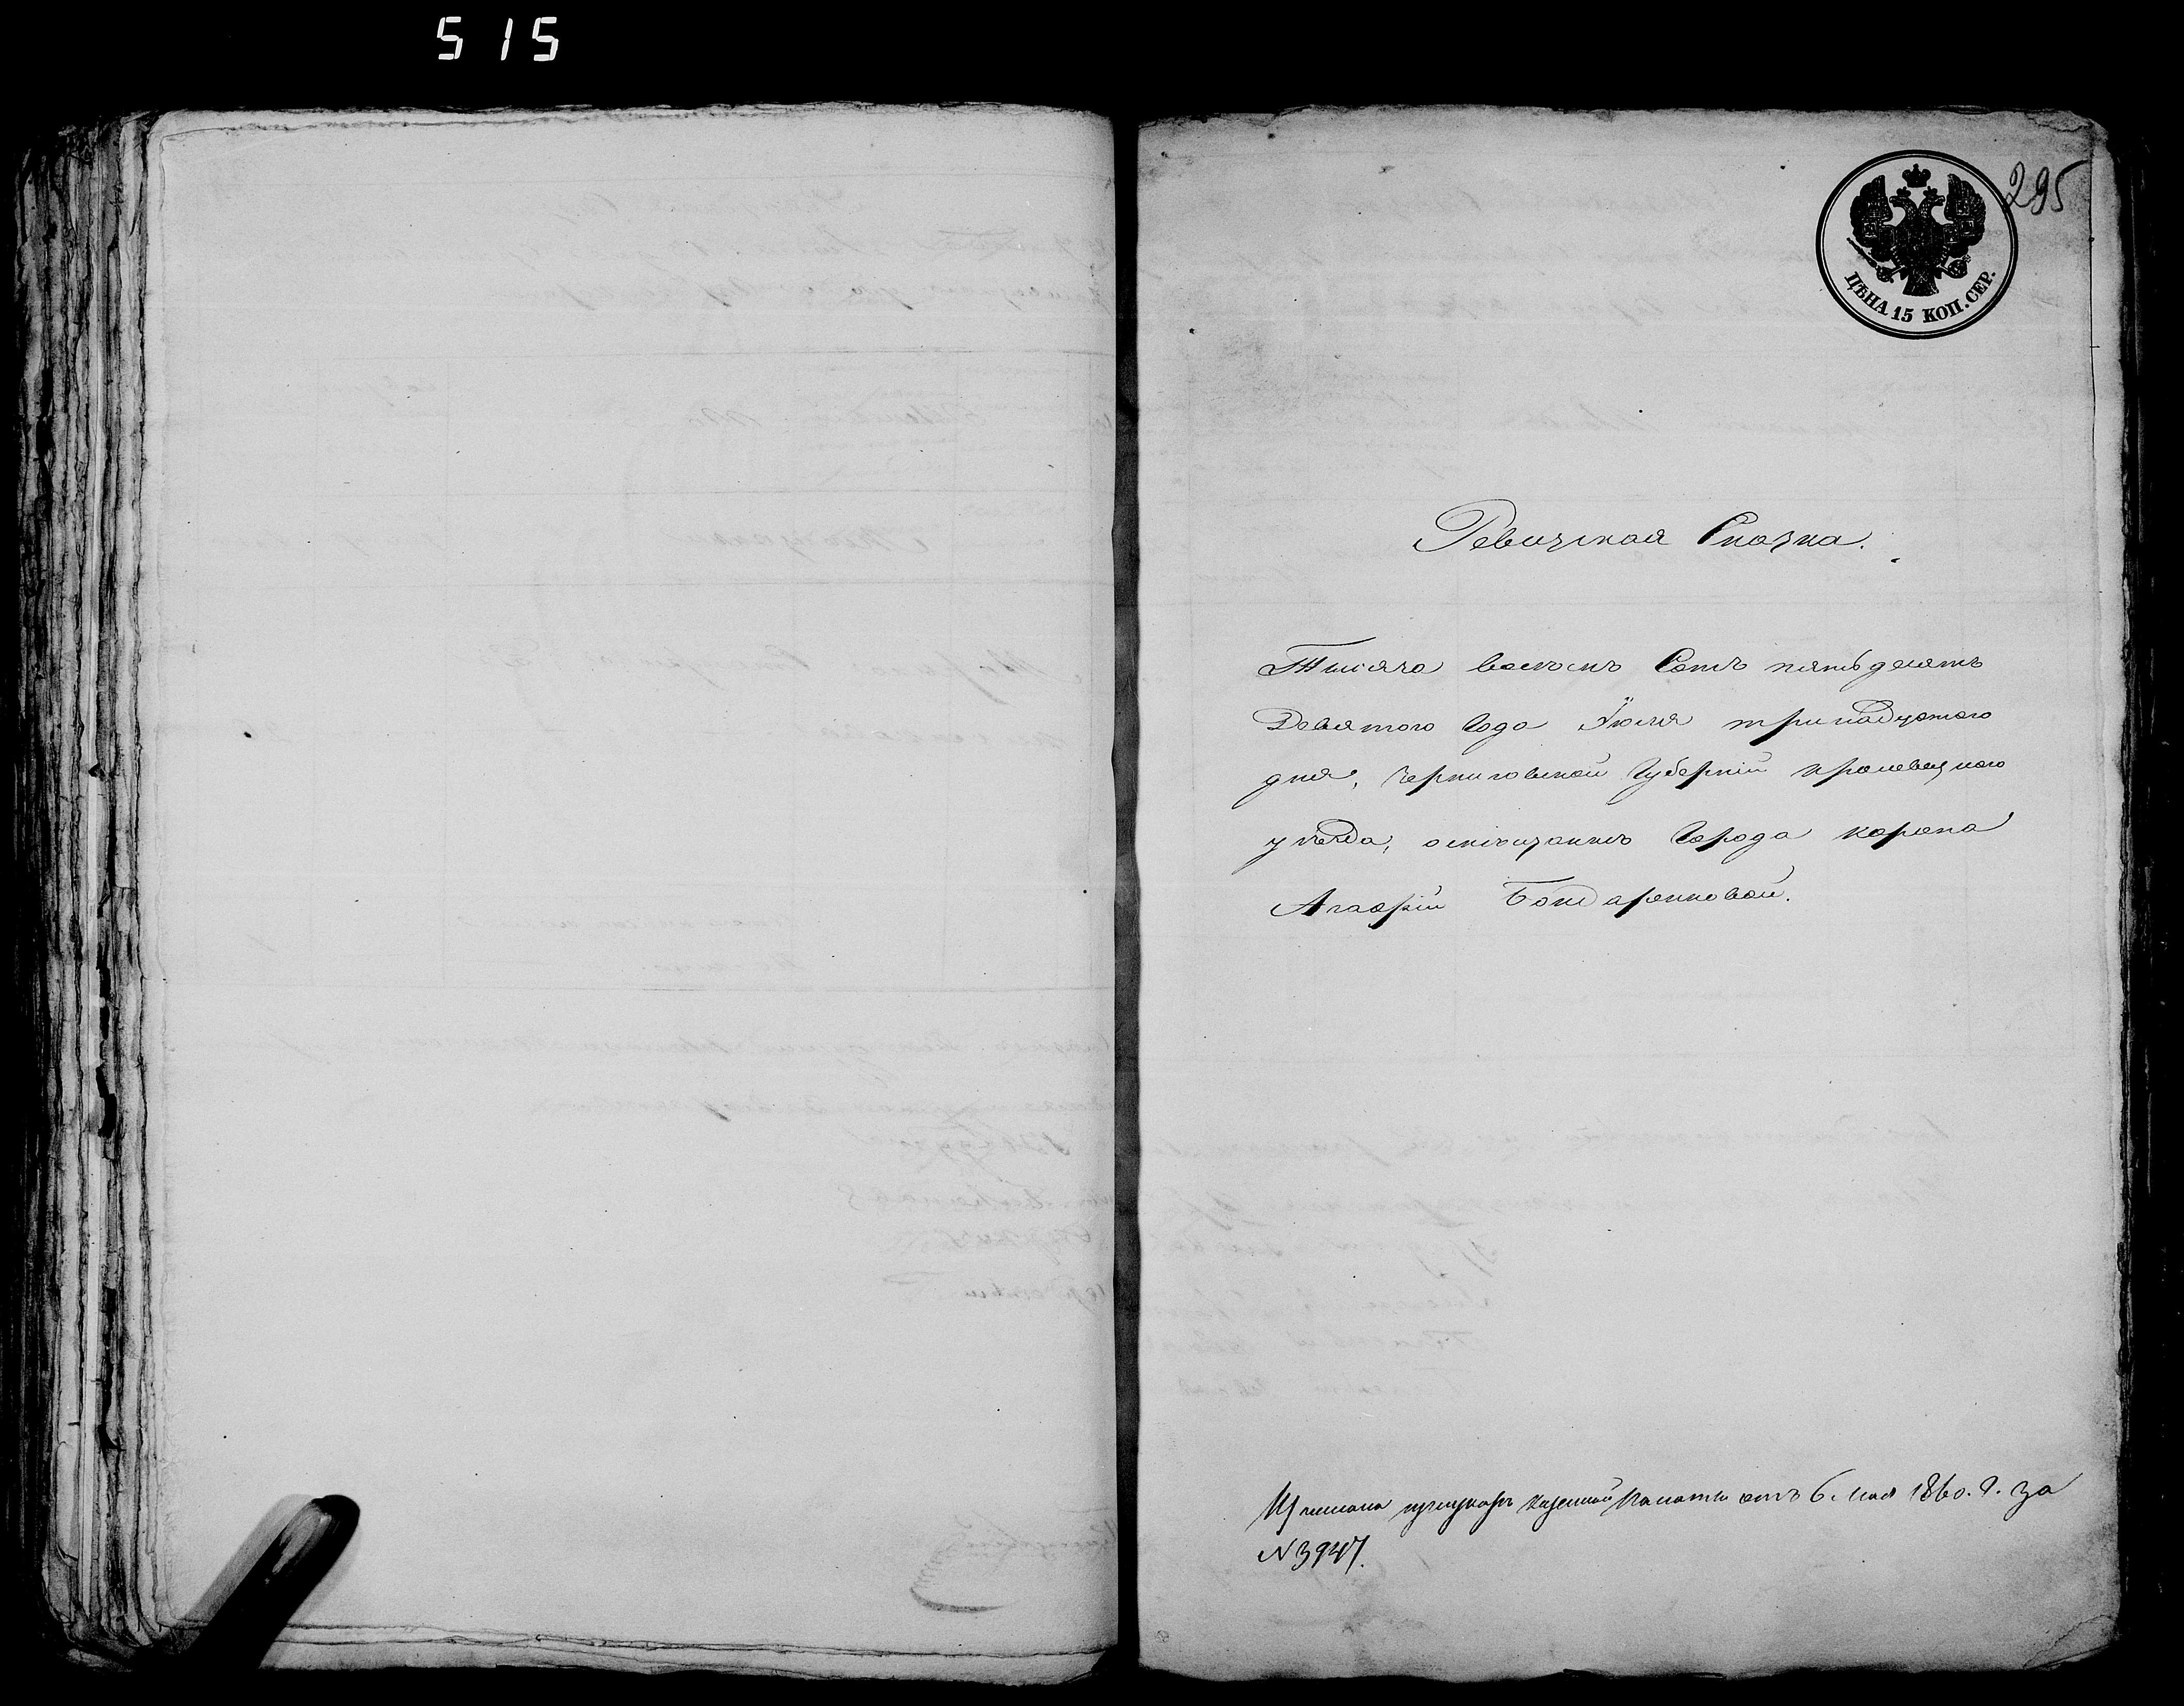 515
295
ЦѢНА 15 КОП. СЕР.
Ревизская Сказка.
Тысяча восемъ Сотъ пятьдесятъ
Девятого Года Іюля тринадцатого
дня, Черниговской Губерніи кролевецкого
уѣзда, Города коропа
Агафіи Бондаренковой.
казенной Палаты отъ 6. Мая 1860. г. за
N 3947.